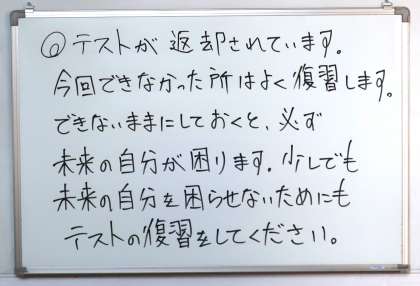 ◎テストが返却されています。
今回できなかった所はよく復習します。
できないままにしておくと、必ず
未来の自分が困ります。少しでも
未来の自分を困らせないためにも
テストの復習をしてください。